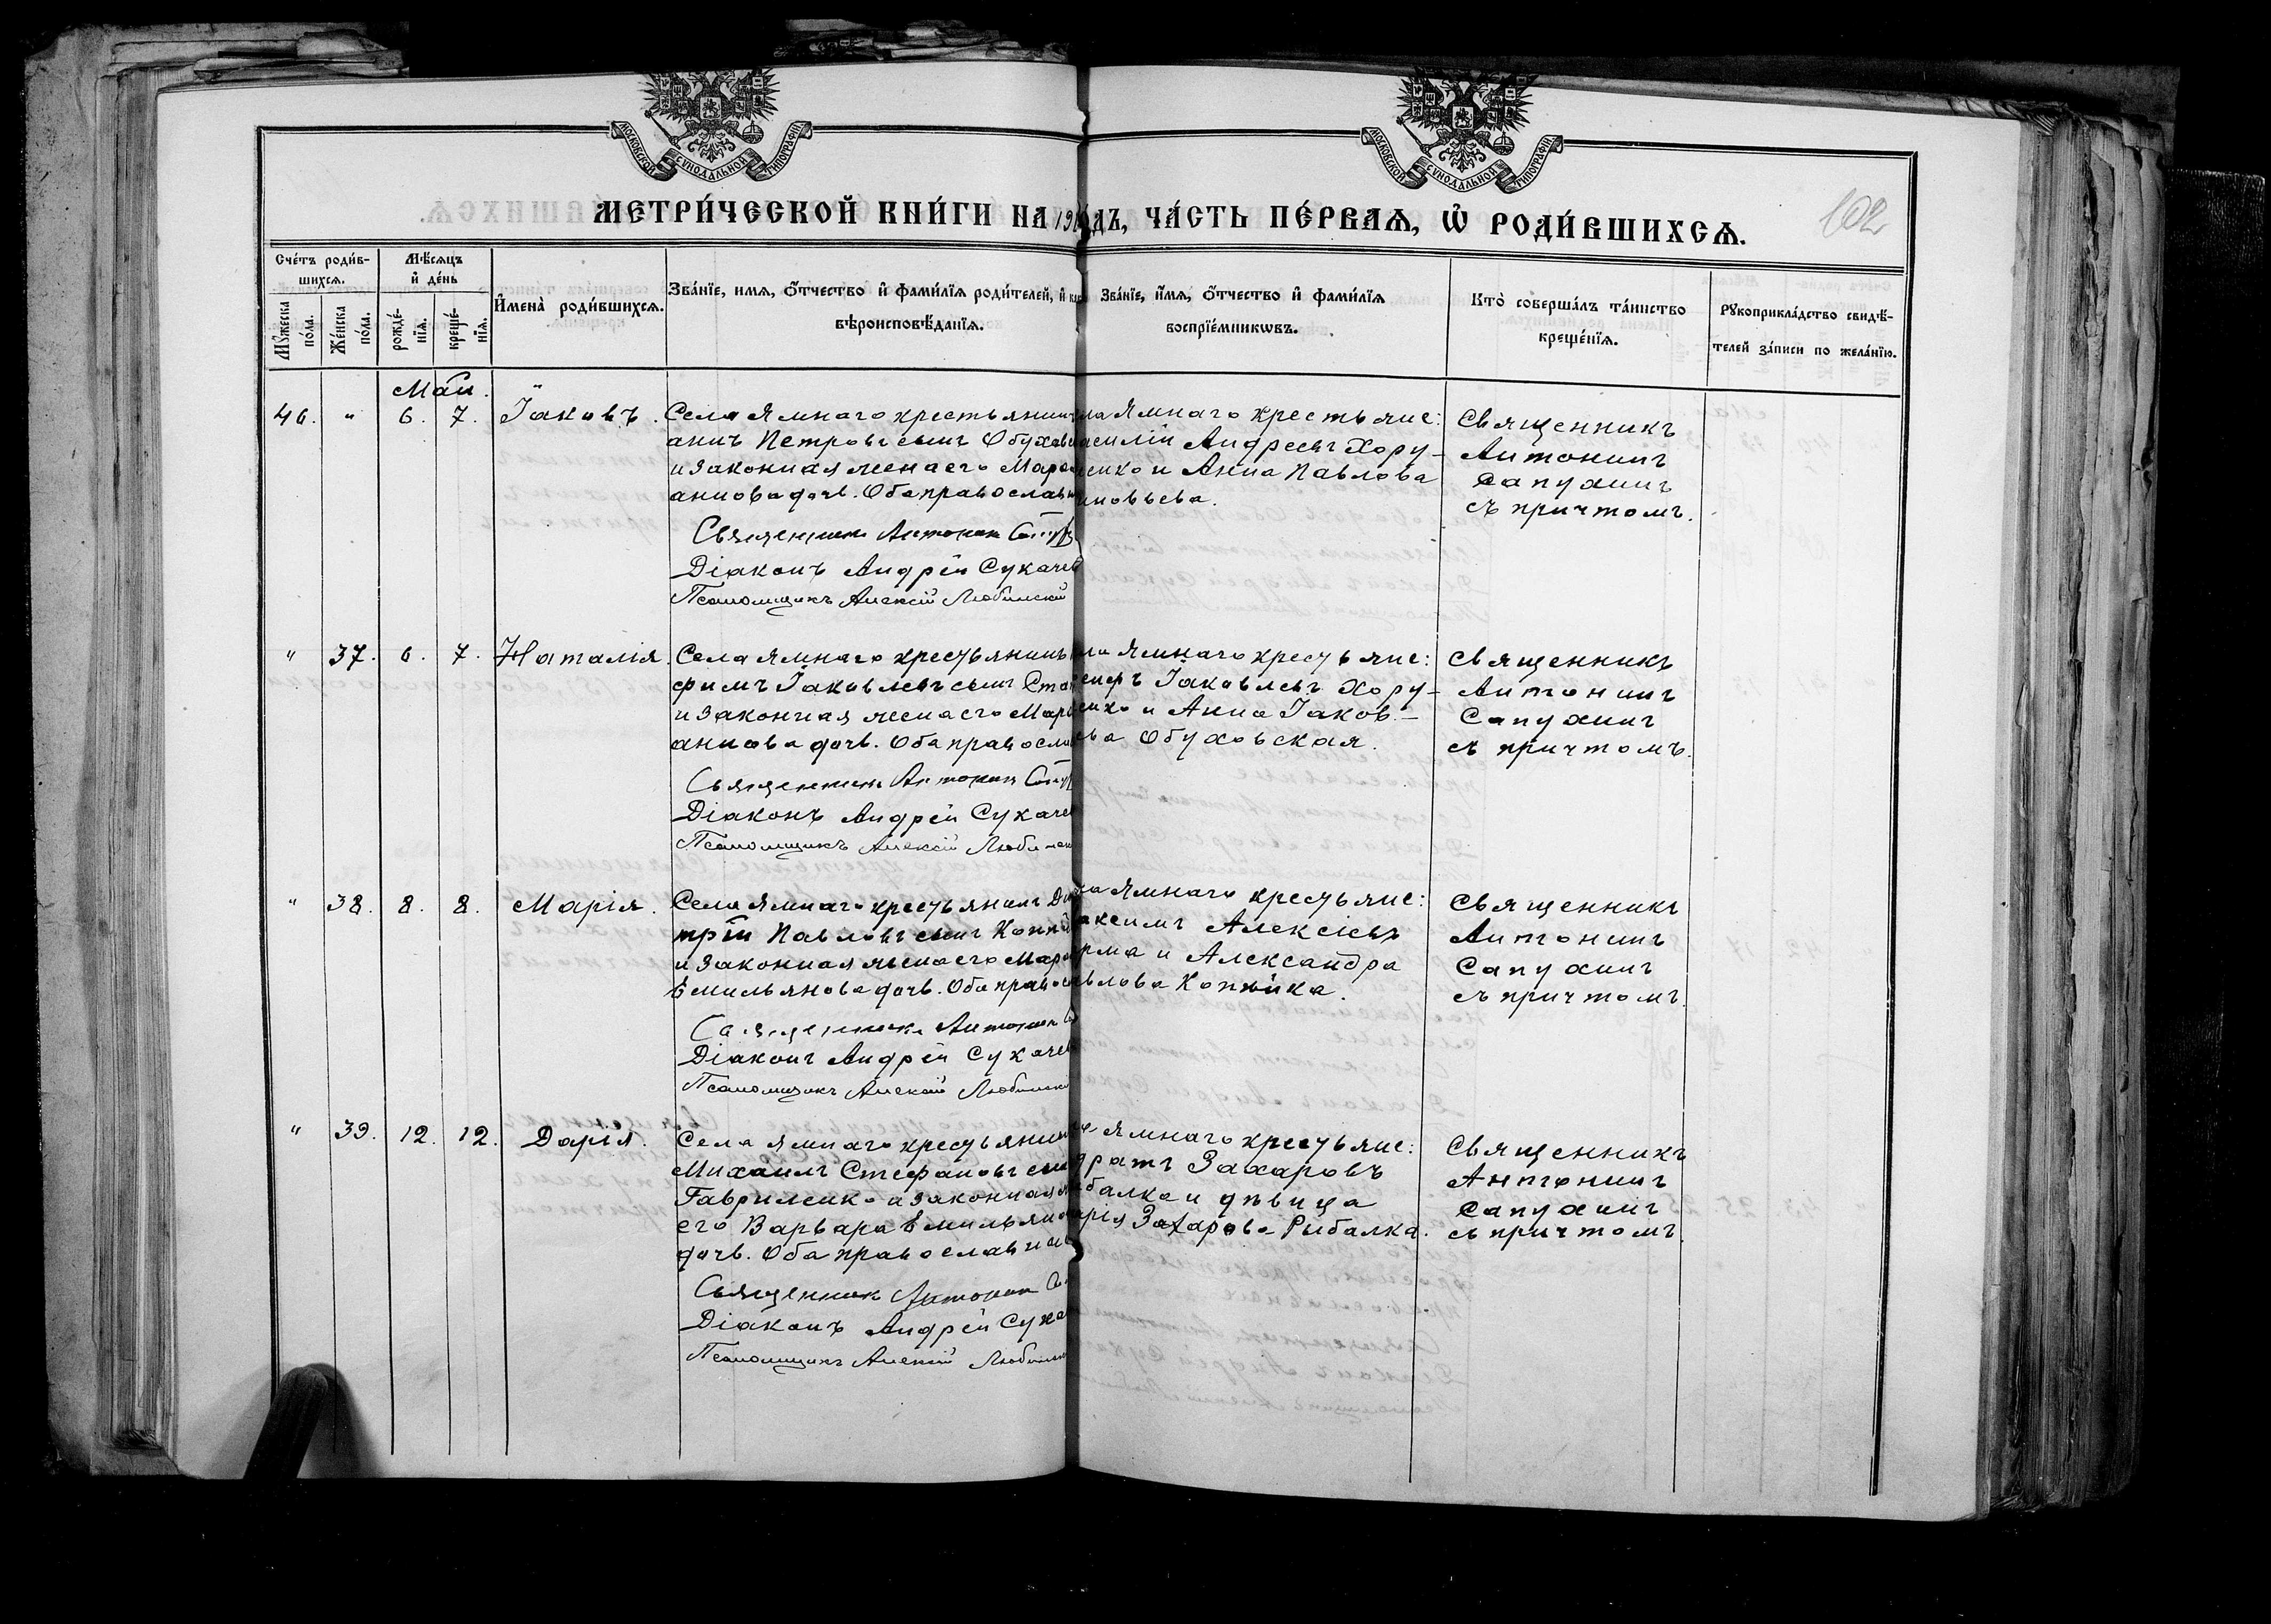 МОСКОВСКОЙ СѴНОДАЛЬНОЙ ТИПОГРАФІИ.
МОСКОВСКОЙ СѴНОДАЛЬНОЙ ТИПОГРАФІИ.
МЕТРИ́ЧЕСКОЙ КНИ́ГИ НА 19 ДЪ, ЧА́СТЬ ПЕ́РВАѦ, Ѡ҆ РОДИ́ВШИХСѦ.
102
Сче́тъ роди́в-
шихсѧ.
Мꙋжеска по́ла.
Же́нска по́ла.
Мѣ́сѧцъ
и҆ де́нь
рожде́-
нїѧ.
креще́-
нїѧ.
И҆мена̀ роди́вшихсѧ.
Зва́нїе, имѧ, ѻ҆́тчество и҆ фами́лїѧ роди́телей, и҆
вѣроисповѣ́данїѧ.
Зва́нїе, и҆́мѧ, ѻ҆́тчество и҆ фами́лїѧ
воспрїе́мникѡвъ.
Кто̀ соверша́лъ та́инство
креще́нїѧ.
Рꙋкоприкла́дство свидѣ́-
телей за́писи по жела́нїю.
Маи.
46. " 6. 7. Іаковъ. Села Ямнаго крестьянинъ
анъ Петровъ сынъ Обухов
и законная жена его Мар
анова дочь. Оба православн
Священникъ Антонин
Діаконъ Андрей Сукачев
Псаломщикъ Алексій Любинскій
ла Ямнаго крестьяне:
асилій Андреевъ Хору-
енко и Анна Павлова
иновьева.
Священникъ
Антонинъ
Сапухинъ
съ причтомъ.
" 37. 6. 7. Наталія. Села Ямнаго крестьянинъ
фимъ Іаковлевъ сынъ Ста
и законная жена его Мар
анова дочь. Оба правосла
Священникъ Антонин
Діаконъ Андрей Сукаче
Псаломщикъ Алексій Любинск
ла Ямнаго крестьяне:
сифъ Іаковлевъ Хору-
енко и Анна Іаков-
ева Обуховская.
Священникъ
Антонинъ
Сапухинъ
съ причтомъ.
" 38. 8. 8. Марія. Села Ямнаго крестьянинъ Ди
трій Павловъ сынъ Копѣй
и законная жена его Мар
Емильянова дочь. Оба правос
Священникъ Антонин
Діаконъ Андрей Сукачев
Псаломщикъ Алексій Любинскі
ла Ямнаго крестьяне:
аксимъ Алексіевъ
рма и Александра
авлова Копѣйка.
Священникъ
Антонинъ
Сапухинъ
съ причтомъ.
" 39. 12. 12. Дарія. Села Ямнаго крестьянинъ
Михаилъ Стефановъ сын
Гавриленко и законная
его Варвара Емильяно
дочь. Оба православные
Священникъ Антонин
Діаконъ Андрей Сука
Псаломщикъ Алексій Любинск
Ямнаго крестьяне:
дратъ Захаровъ
балка и дѣвица
арія Захарова Рыбалка.
Священникъ
Антонинъ
Сапухинъ
съ причтомъ.